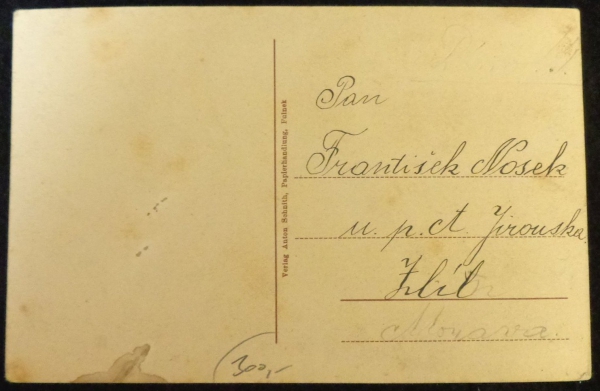 Verlag Anton Schnith, Papierhandlung, Fulnek
Pan
František Nosek
u. p. A. Jirouška
Zlíb
Morava
300,-